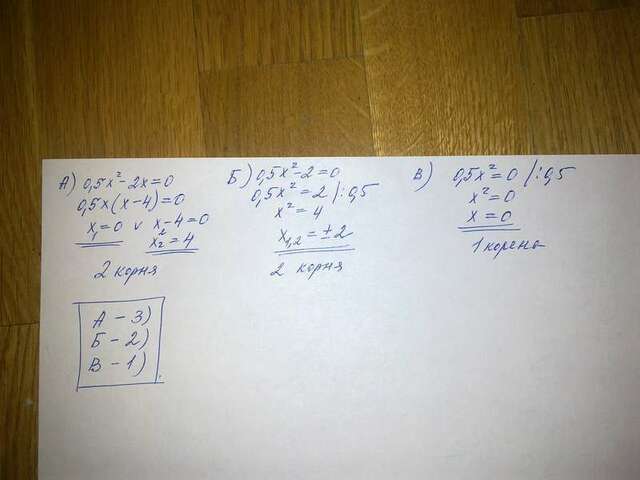 А) 0,5x²-2x=0
0,5x(x-4)=0
x₁=0 ∨ x₂-4=0
x₂=4
2 корня
Б) 0,5x²-2=0
0,5x²=2 /:0,5
x²=4
x₁,₂=±2
2 корня
В) 0,5x²=0 /:0,5
x²=0
x=0
1 корень
А - 3)
Б - 2)
В - 1)